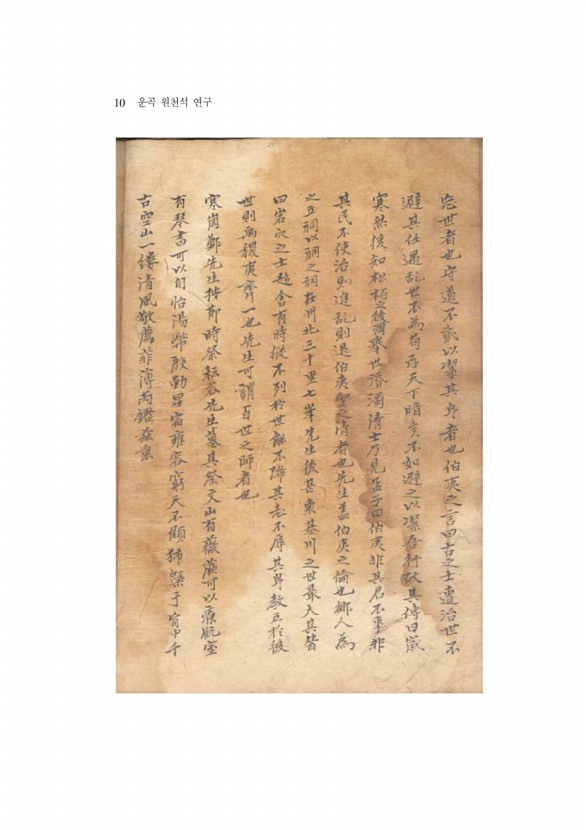 10 운곡 원천석 연구
忘世者也守道不貳以潔其身者也伯夷之言曰古之士遭治世不
避其任遇乱世不為苟存天下暗矣不如避之以潔吾行故其傳曰歲
寒然後知松栢之後凋擧世溷濁清士乃見孟子曰伯夷非其君不事非
其民不使治則進乱則退伯夷聖之清者也先生盖伯夷之倫也鄕人為
之立祠以祠之祠在州北三十里七峯先生後甚衆基川之世最大其贊
曰岩穴之士趍舍有時縱不列於世能不降其志不辱其身教立於後
世則禹稷夷齊一也先生可謂百世之師者也
寒崗鄭先生按節時祭耘谷先生墓其祭文山有薇蕨可以療飢室
有琴書可以自怡湯幣殷勤星宿雍容窮天不顧節槩于胷中千
古空山一縷清風敬薦菲薄尚鑑玆衷